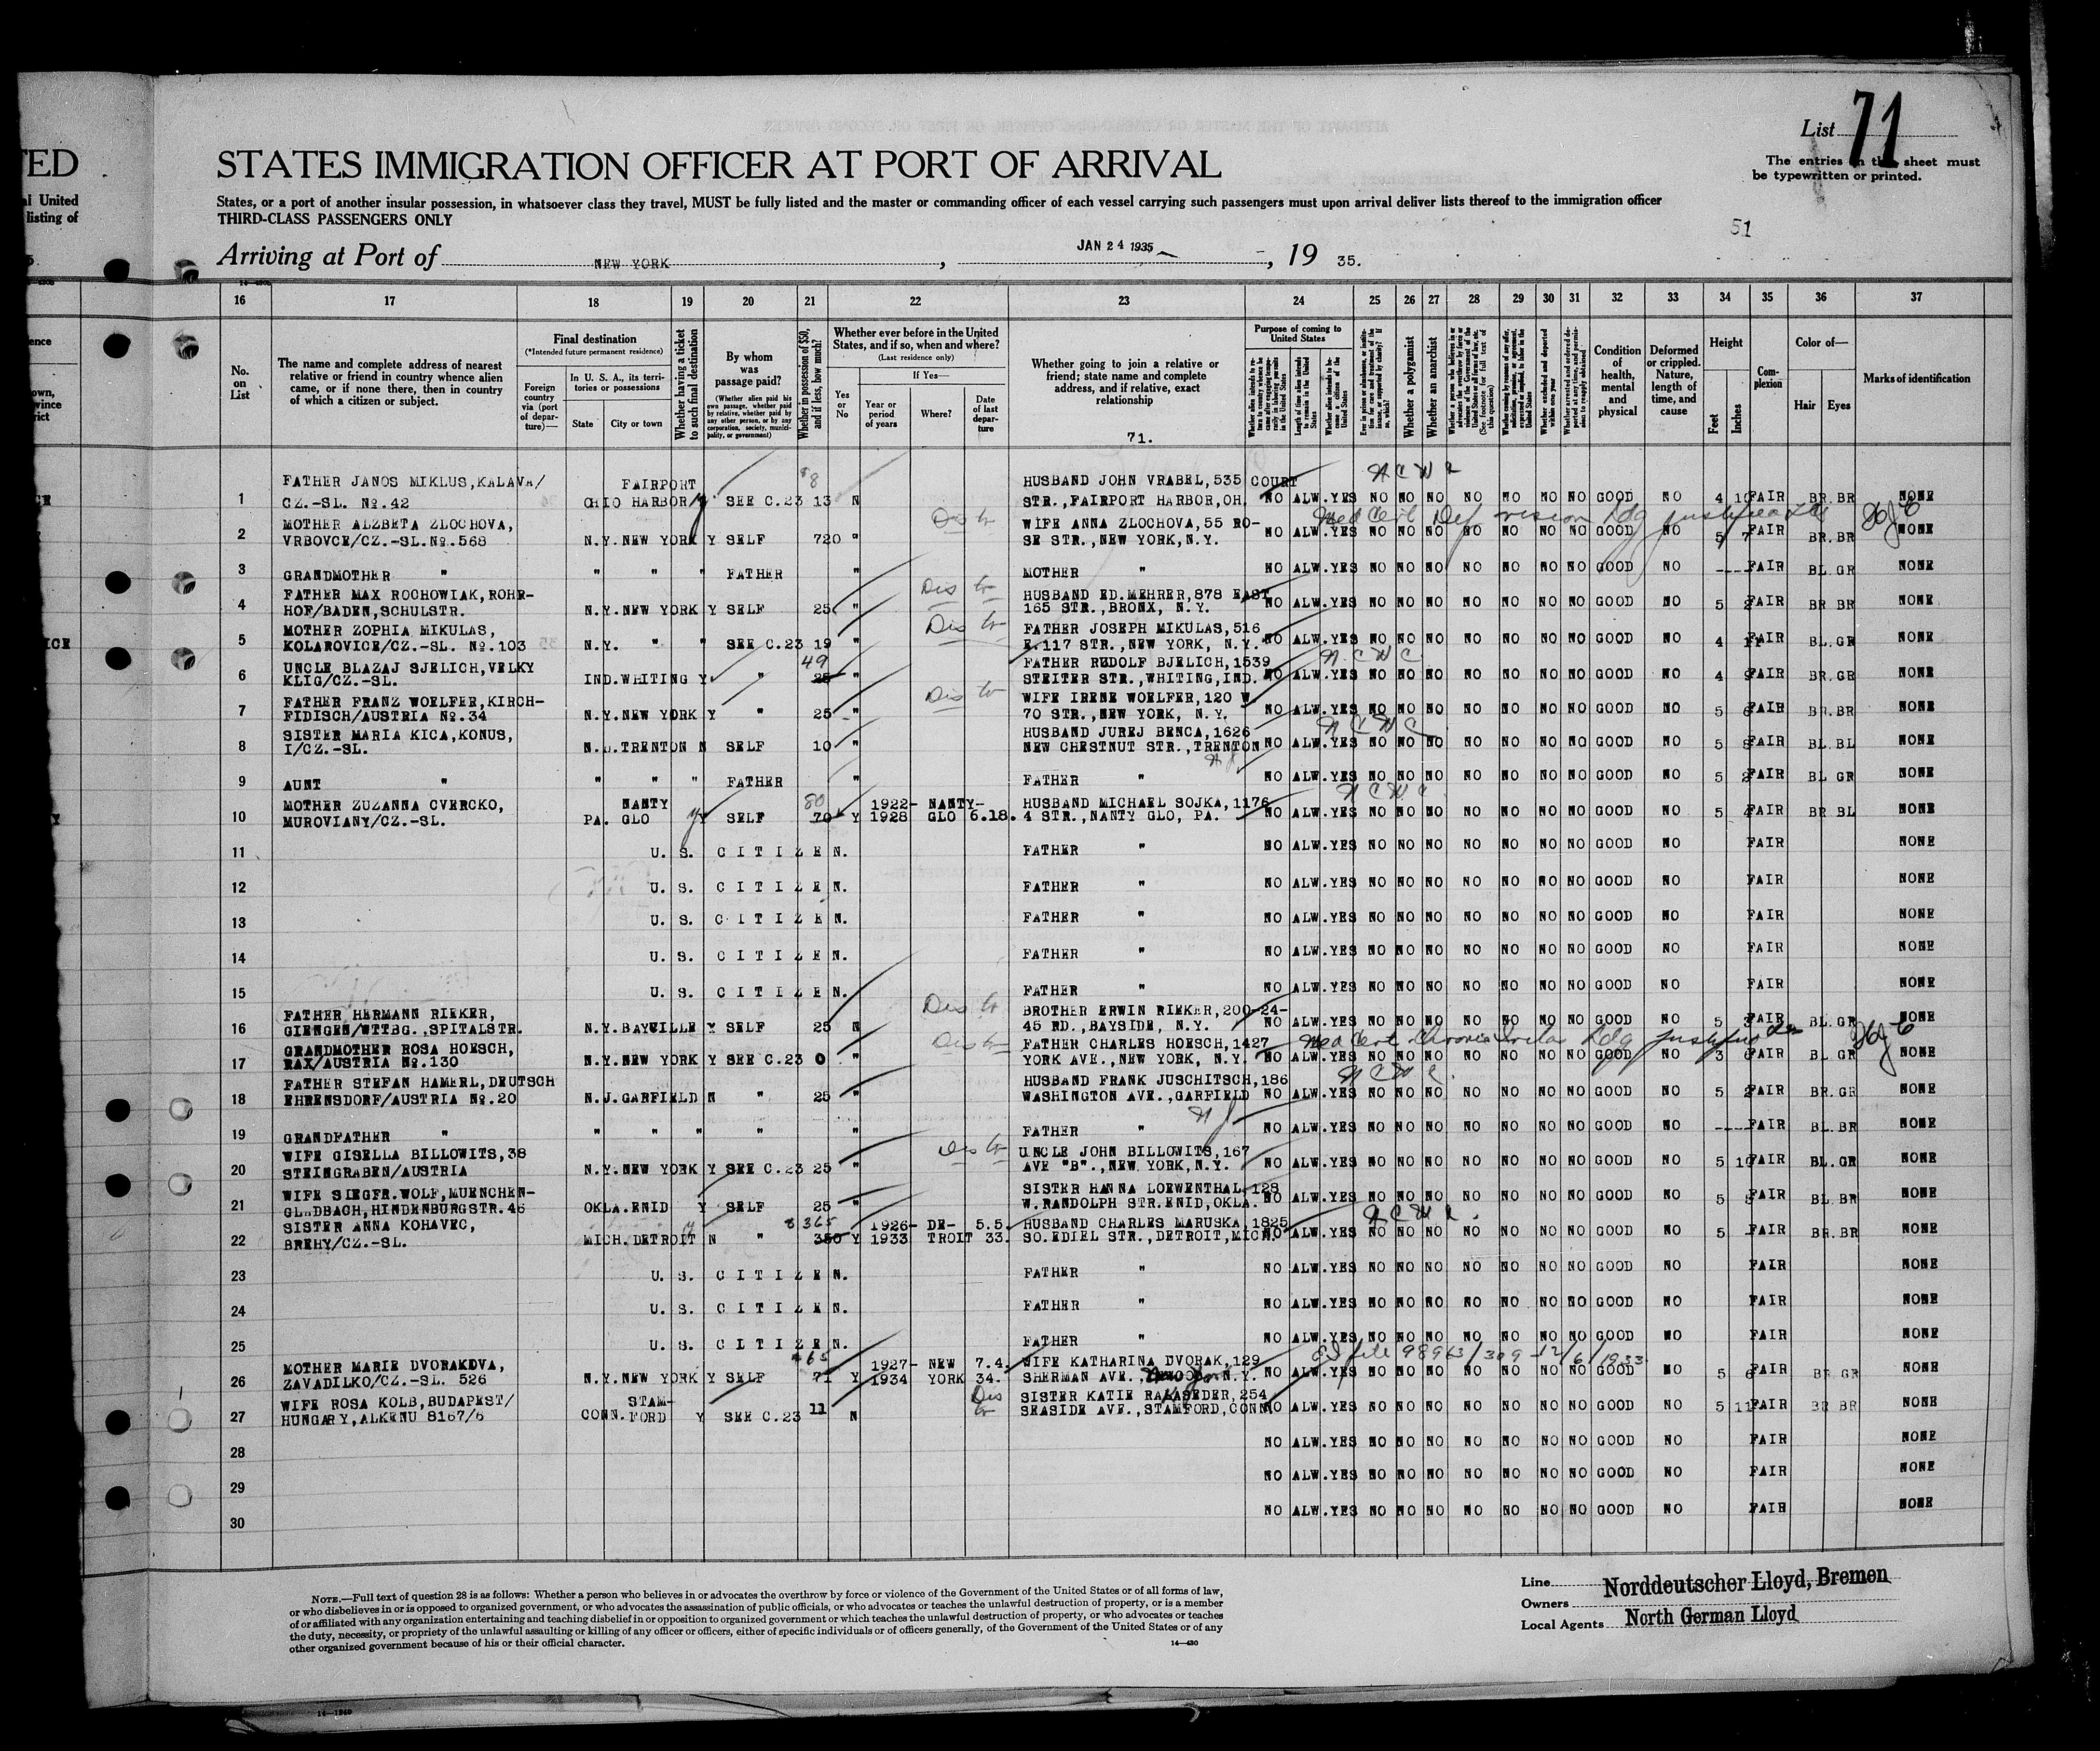 List 71
The entries on this sheet must
be typewritten or printed.
TED
STATES IMMIGRATION OFFICER AT PORT OF ARRIVAL
al United
listing of
States, or a port of another insular possession, in whatsoever class they travel, MUST be fully listed and the master or commanding officer of each vessel carrying such passengers must upon arrival deliver lists thereof to the immigration officer
THIRD-CLASS PASSENGERS ONLY
51
Arriving at Port of NEW YORK, JAN 24 1935, 19 35.
16 17 18 19 20 21 22 23 24 25 26 27 28 29 30 31 32 33 34 35 36 37
No. on List
The name and complete address of nearest
relative or friend in country whence alien
came, or if none there, then in country
of which a citizen or subject.
Final destination
(*Intended future permanent residence)
Foreign country via (port of departure)—
In U. S. A., its territories or possessions
State
City or town
Whether having a ticket to such final destination
By whom was passage paid?
(Whether alien paid his own passage, whether paid by relative, whether paid by any other person, or by any corporation, society, municipality, or government)
Whether in possession of $50, and if less, how much?
Whether ever before in the United
States, and if so, when and where?
(Last residence only)
Yes or No
If Yes—
Year or period of years
Where?
Date of last departure
Whether going to join a relative or
friend; state name and complete
address, and if relative, exact
relationship
71.
Purpose of coming to United States
Length of time alien intends to remain in the United States
Whether alien intends to become a citizen of the United States
Whether a polygamist
Whether an anarchist
Condition of health, mental and physical
Deformed or crippled. Nature, length of time, and cause
Height
Feet
Inches
Complexion
Color of—
Hair
Eyes
Marks of identification
FATHER JANOS MIKLUS,KALAVA/ FAIRPORT 8 HUSBAND JOHN VRABEL,535 COURT
1 CZ.-SL. No.42 OHIO HARBOR SEE C.23 13 N STR.,FAIRPORT HARBOR,OH. NO ALW.YES NO NO NO NO NO NO NO GOOD NO 4 10 FAIR BR.BR NONE
MOTHER ALZBETA ZLOCHOVA, Dis tr WIFE ANNA ZLOCHOVA,55 RO- Med Cert Def vision
2 VRBOVCE/CZ.-SL.No.568 N.Y.NEW YORK Y SELF 720 " SE STR.,NEW YORK,N.Y. NO ALW.YES NO NO NO NO NO NO NO GOOD NO 5 7 FAIR BR.BR NONE
3 GRANDMOTHER " " " " FATHER " MOTHER " NO ALW.YES NO NO NO NO NO NO NO GOOD NO ---- FAIR BL.GR NONE
FATHER MAX ROCHOWIAK,ROHR- Dis tr HUSBAND ED.MEHRER,878 EAST
4 HOF/BADEN,SCHULSTR. N.Y.NEW YORK Y SELF 25 " 165 STR.,BRONX, N.Y. NO ALW.YES NO NO NO NO NO NO NO GOOD NO 5 2 FAIR BR BR NONE
MOTHER ZOPHIA MIKULAS, Dis tr FATHER JOSEPH MIKULAS,516
5 KOLAROVICE/CZ.-SL. No.103 N.Y. " " SEE C.23 19 " E.117 STR.,NEW YORK, N.Y. NO ALW.YES NO NO NO NO NO NO NO GOOD NO 4 11 FAIR BL.GR NONE
UNCLE BLAZAJ SJELICH,VELKY 49 FATHER RUDOLF BJELICH,1539
6 KLIG/CZ.-SL. IND.WHITING Y " 25 " STEITER STR.,WHITING,IND. NO ALW.YES NO NO NO NO NO NO NO GOOD NO 4 9 FAIR BR.GR NONE
FATHER FRANZ WOELFER,KIRCH- Dis tr WIFE IRENE WOELFER,120 W.
7 FIDISCH/AUSTRIA No.34 N.Y.NEW YORK Y " 25 " 70 STR.,NEW YORK, N.Y. NO ALW.YES NO NO NO NO NO NO NO GOOD NO 5 6 FAIR BR.BR NONE
SISTER MARIA KICA,KONUS, HUSBAND JUREJ BENCA,1626
8 I/CZ.-SL. N.J.TRENTON N SELF 10 " NEW CHESTNUT STR.,TRENTON NO ALW.YES NO NO NO NO NO NO NO GOOD NO 5 8 FAIR BL.BL NONE
N J
9 AUNT " " " " FATHER " FATHER " NO ALW.YES NO NO NO NO NO NO NO GOOD NO 5 2 FAIR BL GR NONE
MOTHER ZUZANNA CVERCKO, NANTY 80 1922- NANTY- HUSBAND MICHAEL SOJKA,1176
10 MUROVIANY/CZ.-SL. PA. GLO Y SELF 70 Y 1928 GLO 6.18. 4 STR.,NANTY GLO, PA. NO ALW.YES NO NO NO NO NO NO NO GOOD NO 5 4 FAIR BR BL NONE
11 U. S. C I T I Z E N. FATHER " NO ALW.YES NO NO NO NO NO NO NO GOOD NO FAIR NONE
12 U. S. C I T I Z E N. FATHER " NO ALW.YES NO NO NO NO NO NO NO GOOD NO FAIR NONE
13 U. S. C I T I Z E N. FATHER " NO ALW.YES NO NO NO NO NO NO NO GOOD NO FAIR NONE
14 U. S. C I T I Z E N. FATHER " NO ALW.YES NO NO NO NO NO NO NO GOOD NO FAIR NONE
15 U. S. C I T I Z E N. FATHER " NO ALW.YES NO NO NO NO NO NO NO GOOD NO FAIR NONE
FATHER HERMANN RIEKER, Dis tr BROTHER ERWIN RIEKER,200-24-
16 GIENGEN/WTTBG.,SPITALSTR. N.Y.BAYVILLE Y SELF 25 N 45 RD.,BAYSIDE, N.Y. NO ALW.YES NO NO NO NO NO NO NO GOOD NO 5 3 FAIR BL.GR NONE
GRANDMOTHER ROSA HOESCH, Dis tr FATHER CHARLES HOESCH,1427 Med Cert Chronic
17 RAX/AUSTRIA No.130 N.Y.NEW YORK Y SEE C.23 0 " YORK AVE.,NEW YORK, N.Y. NO ALW.YES NO NO NO NO NO NO NO GOOD NO 3 6 FAIR BL GR NONE
FATHER STEFAN HAMERL,DEUTSCH HUSBAND FRANK JUSCHITSCH,186
18 EHRENSDORF/AUSTRIA No.20 N.J.GARFIELD N " 25 " WASHINGTON AVE.,GARFIELD NO ALW.YES NO NO NO NO NO NO NO GOOD NO 5 2 FAIR BR.GR NONE
N J
19 GRANDFATHER " " " " " " FATHER " NO ALW.YES NO NO NO NO NO NO NO GOOD NO ---- FAIR BL.BR NONE
WIFE GISELLA BILLOWITS,38 Dis tr UNCLE JOHN BILLOWITS,167
20 STEINGRABEN/AUSTRIA N.Y.NEW YORK Y SEE C.23 25 " AVE "B".,NEW YORK,N.Y. NO ALW.YES NO NO NO NO NO NO NO GOOD NO 5 10 FAIR BL.GR NONE
WIFE SIEGFR.WOLF,MUENCHEN- SISTER HANNA LOEWENTHAL,128
21 GLADBACH,HINDENBURGSTR.46 OKLA.ENID Y SELF 25 " W.RANDOLPH STR.ENID,OKLA. NO ALW.YES NO NO NO NO NO NO NO GOOD NO 5 8 FAIR BL.BR NONE
SISTER ANNA KOHAVEC, $365 1926- DE- 5.5. HUSBAND CHARLES MARUSKA,1825
22 BREHY/CZ.-SL. MICH.DETROIT N " 350 Y 1933 TROIT 33. SO.EDIEL STR.,DETROIT,MICH. NO ALW.YES NO NO NO NO NO NO NO GOOD NO 5 - FAIR BR.BR NONE
23 U. S. C I T I Z E N. FATHER " NO ALW.YES NO NO NO NO NO NO NO GOOD NO FAIR NONE
24 U. S. C I T I Z E N. FATHER " NO ALW.YES NO NO NO NO NO NO NO GOOD NO FAIR NONE
25 U. S. C I T I Z E N. FATHER " NO ALW.YES NO NO NO NO NO NO NO GOOD NO FAIR NONE
MOTHER MARIE DVORAKOVA, $65 1927- NEW 7.4. WIFE KATHARINA DVORAK,129 file 98963/309 - 12/6/1933
26 ZAVADILKO/CZ.-SL. 526 N.Y.NEW YORK Y SELF 71 Y 1934 YORK 34. SHERMAN AVE., N.Y. NO ALW.YES NO NO NO NO NO NO NO GOOD NO 5 6 FAIR BR GR NONE
WIFE ROSA KOLB,BUDAPEST/ STAM- Dis SISTER KATIE RAKASEDER,254
27 HUNGARY,ALKENU 8167/6 CONN.FORD Y SEE C.23 11 N tr SEASIDE AVE.,STAMFORD,CONN. NO ALW.YES NO NO NO NO NO NO NO GOOD NO 5 11 FAIR BR BR NONE
28 NO ALW.YES NO NO NO NO NO NO NO GOOD NO FAIR NONE
29 NO ALW.YES NO NO NO NO NO NO NO GOOD NO FAIR NONE
30 NO ALW.YES NO NO NO NO NO NO NO GOOD NO FAIR NONE
NOTE.—Full text of question 28 is as follows: Whether a person who believes in or advocates the overthrow by force or violence of the Government of the United States or of all forms of law,
or who disbelieves in or is opposed to organized government, or who advocates the assassination of public officials, or who advocates or teaches the unlawful destruction of property, or is a member
of or affiliated with any organization entertaining and teaching disbelief in or opposition to organized government or which teaches the unlawful destruction of property, or who advocates or teaches
the duty, necessity, or propriety of the unlawful assaulting or killing of any officer or officers, either of specific individuals or of officers generally, of the Government of the United States or of any
other organized government because of his or their official character.
14—430
Line Norddeutscher Lloyd, Bremen
Owners
Local Agents North German Lloyd